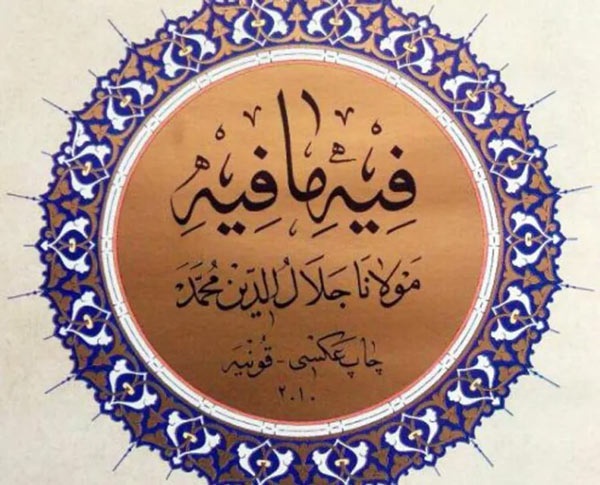 فِيْهِ مَا فِيْهِ
مَوْلَانَا جَلَالُ الدِّيْن مُحَمَّدْ
چاپ عَكْسِى - قُونِيَه
٢٠١٠